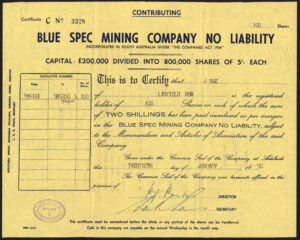 CONTRIBUTING
Certificate C No 3328
100 Shares
BLUE SPEC MINING COMPANY NO LIABILITY
INCORPORATED IN SOUTH AUSTRALIA UNDER "THE COMPANIES ACT 1934"
CAPITAL: £200,000 DIVIDED INTO 800,000 SHARES OF 5/- EACH
DISTINCTIVE NUMBERS
This is to Certify that
LINFIELD NSW is the registered
holder of 100 Shares on each of which the sum
of TWO SHILLINGS has been paid numbered as per margin
in the BLUE SPEC MINING COMPANY NO LIABILITY, subject
to the Memorandum and Articles of Association of the said
Company.
Given under the Common Seal of the Company at Adelaide
this TWENTIETH day of JANUARY 19 50
The Common Seal of the Company was hereunto affixed in the presence of
DIRECTOR
SECRETARY
This certificate must be surrendered before the whole or any portion of the shares can be transferred.
Calls in this company are payable on the second Wednesday in the month only.